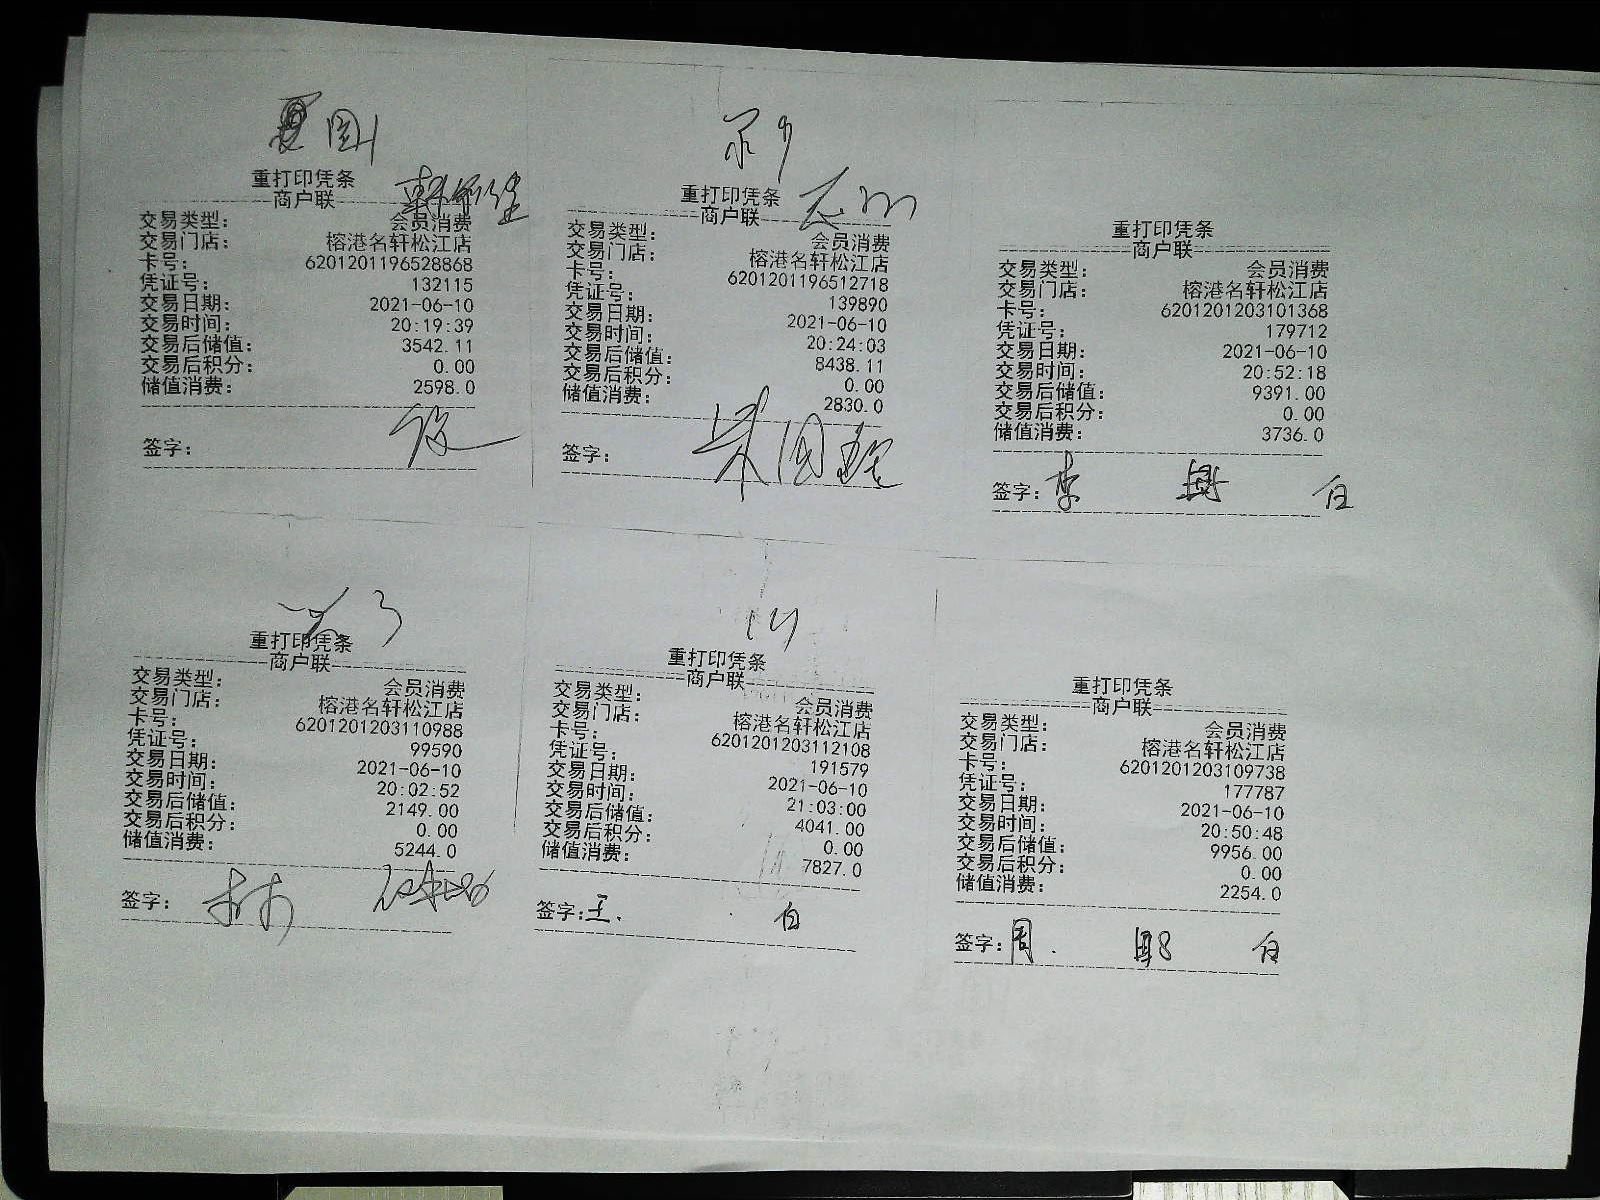 夏国
重打印凭条
商户联
交易类型: 会员消费
交易门店: 榕港名轩松江店
卡号: 6201201196528868
凭证号: 132115
交易日期: 2021-06-10
交易时间: 20:19:39
交易后储值: 3542.11
交易后积分: 0.00
储值消费: 2598.0
签字:
重打印凭条
商户联
交易类型: 会员消费
交易门店: 榕港名轩松江店
卡号: 6201201196512718
凭证号: 139890
交易日期: 2021-06-10
交易时间: 20:24:03
交易后储值: 8438.11
交易后积分: 0.00
储值消费: 2830.0
签字:
重打印凭条
商户联
交易类型: 会员消费
交易门店: 榕港名轩松江店
卡号: 6201201203101368
凭证号: 179712
交易日期: 2021-06-10
交易时间: 20:52:18
交易后储值: 9391.00
交易后积分: 0.00
储值消费: 3736.0
签字: 李
重打印凭条
商户联
交易类型: 会员消费
交易门店: 榕港名轩松江店
卡号: 6201201203110988
凭证号: 99590
交易日期: 2021-06-10
交易时间: 20:02:52
交易后储值: 2149.00
交易后积分: 0.00
储值消费: 5244.0
签字:
重打印凭条
商户联
交易类型: 会员消费
交易门店: 榕港名轩松江店
卡号: 6201201203112108
凭证号: 191579
交易日期: 2021-06-10
交易时间: 21:03:00
交易后储值: 4041.00
交易后积分: 0.00
储值消费: 7827.0
签字: 王
重打印凭条
商户联
交易类型: 会员消费
交易门店: 榕港名轩松江店
卡号: 6201201203109738
凭证号: 177787
交易日期: 2021-06-10
交易时间: 20:50:48
交易后储值: 9956.00
交易后积分: 0.00
储值消费: 2254.0
签字: 周